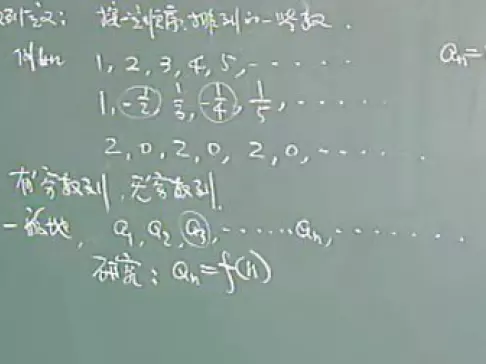 列定义：按一定顺序排列的一组数.
例如 1, 2, 3, 4, 5, ······ aₙ=
1, -1/2, 1/3, -1/4, 1/5, ······
2, 0, 2, 0, 2, 0, ······
有穷数列，无穷数列.
一般地, a₁, a₂, a₃, ······ aₙ, ······
研究：aₙ=f(n)